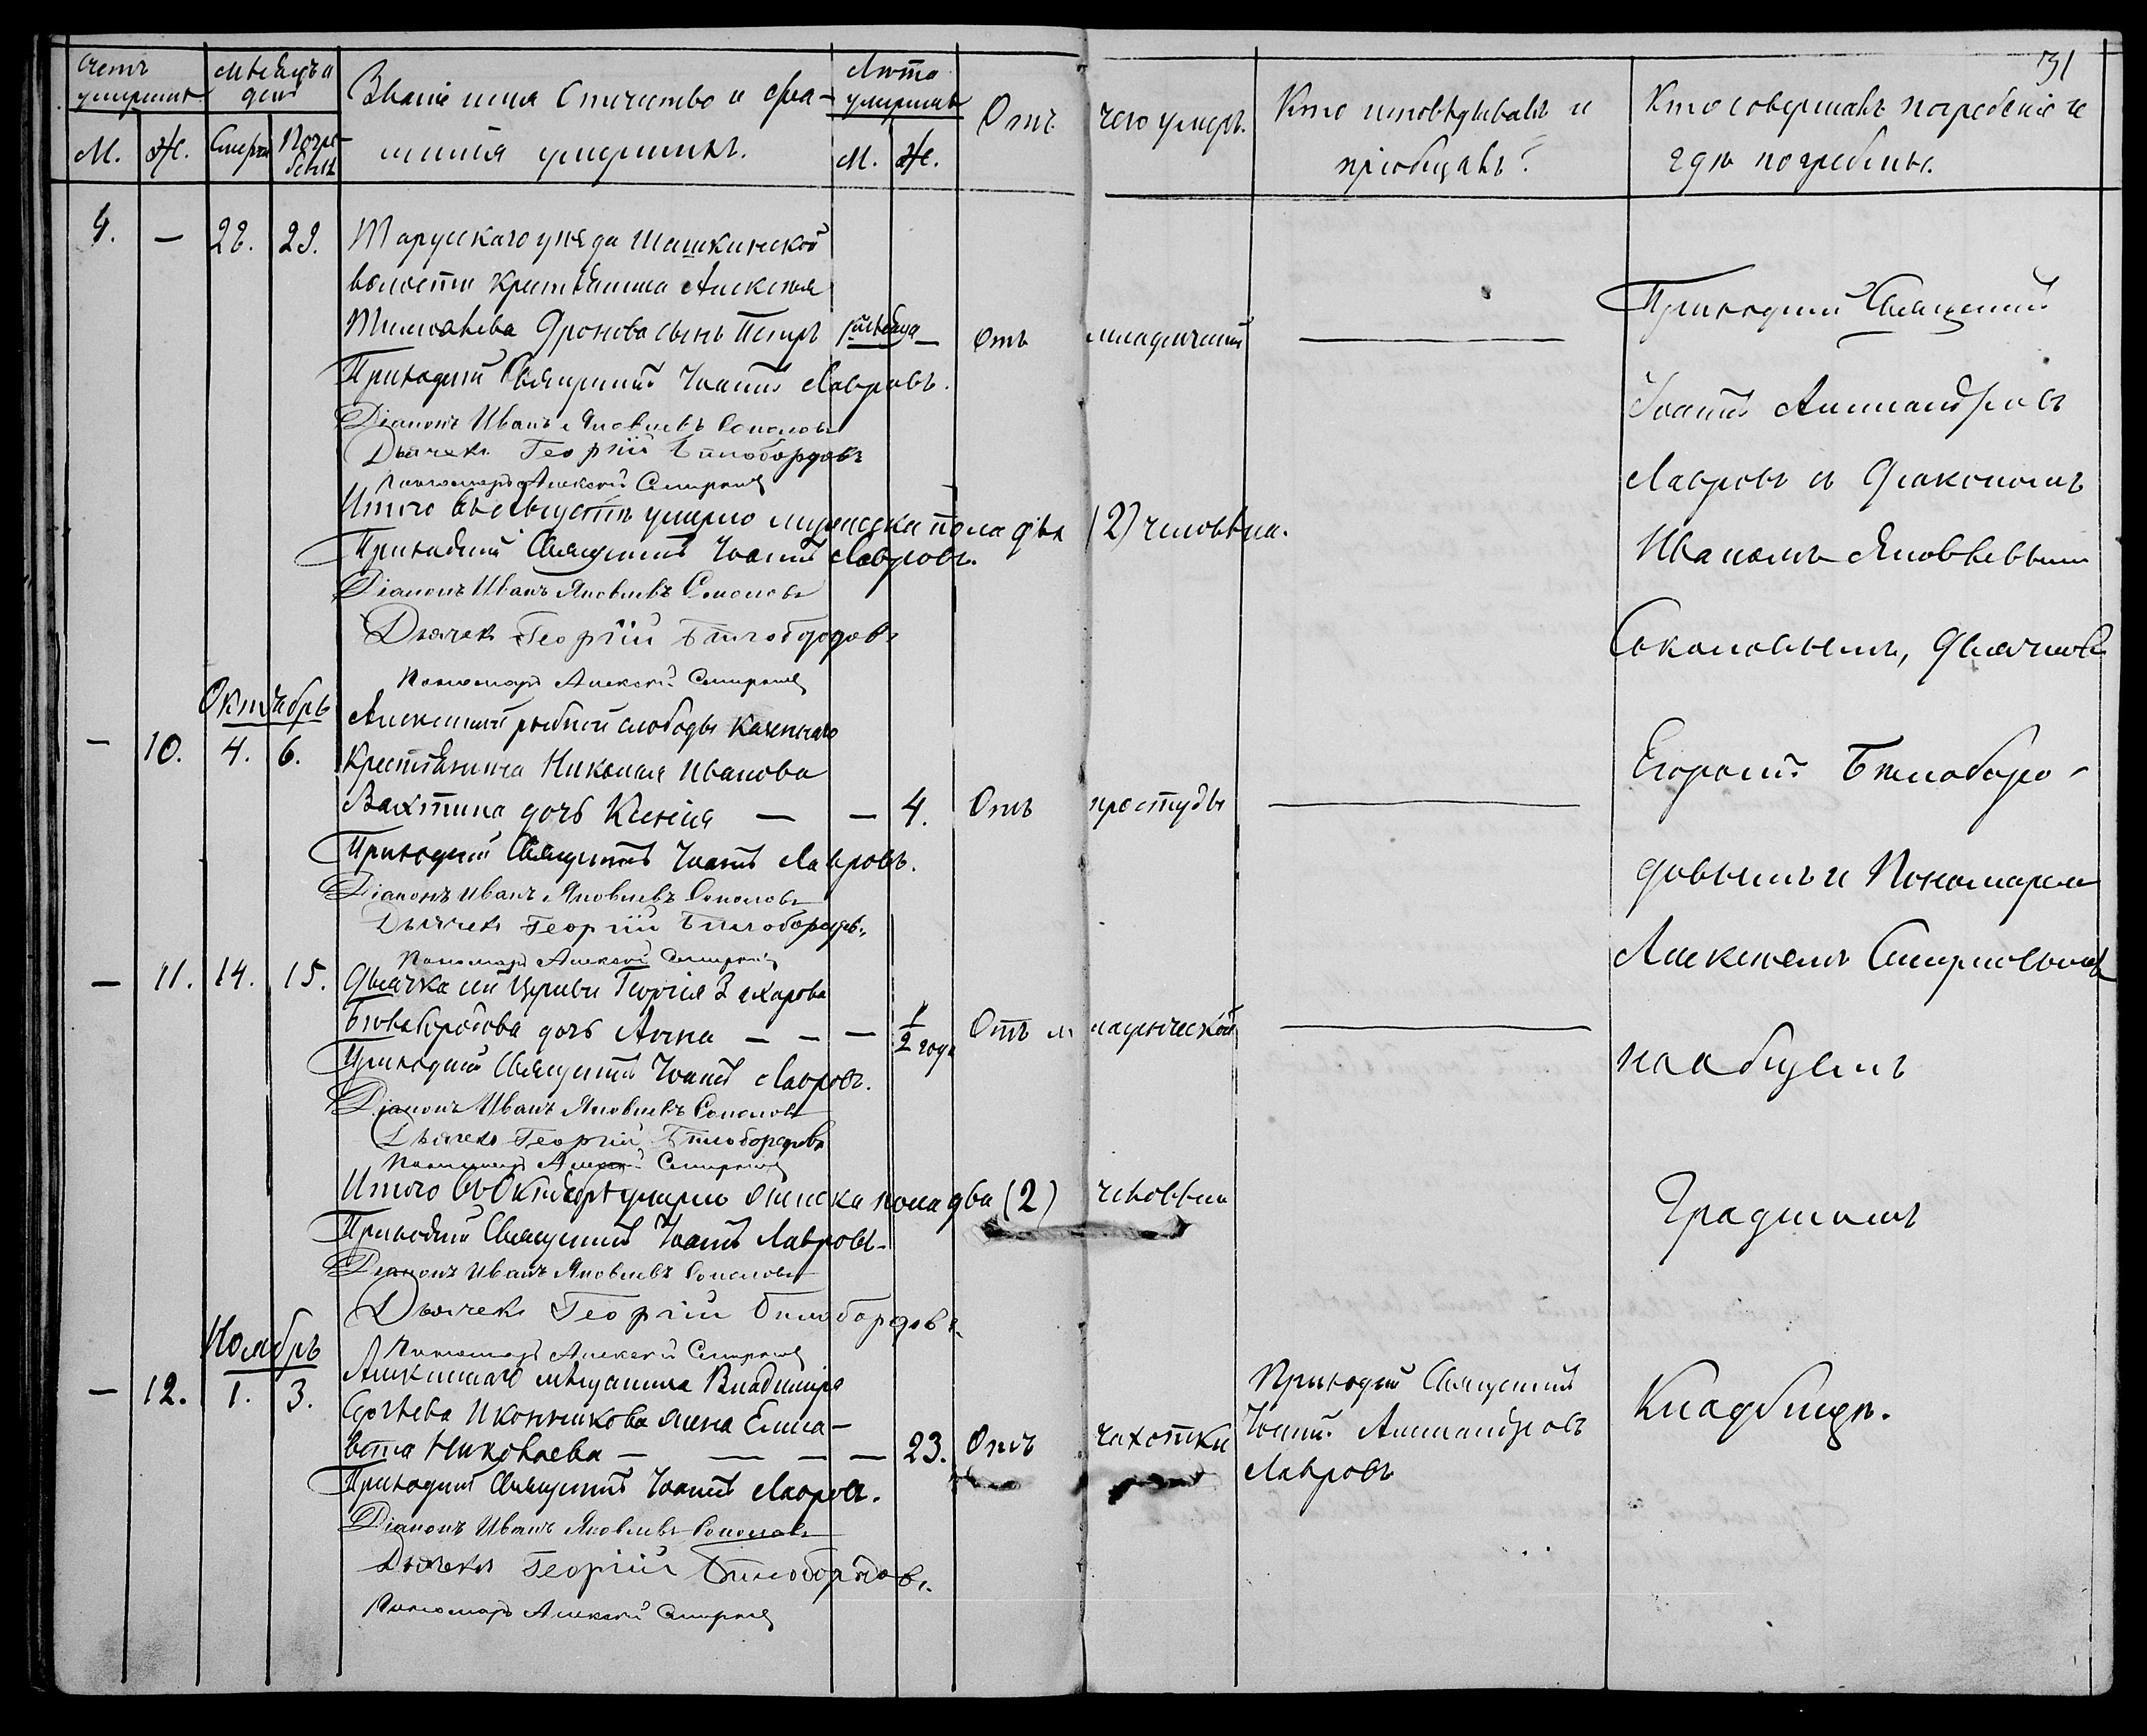 31
Счетъ умершихъ
Мѣсяцъ и день
Званіе имя Отчество и фамилія умершихъ.
Лѣта умершихъ
Отъ чего умеръ.
Кто исповѣдывалъ и пріобщалъ?
Кто совершалъ погребеніе и гдѣ погребены.
М. Ж. Смерти М. Ж.
4. — 28. 29. Тарусскаго уѣзда
волости крестьянина Алексѣя
сынъ Петръ Отъ младенческой
Приходскій Священникъ Іоаннъ Лавровъ.
Діаконъ Иванъ Яковлевъ Соколовъ
Дьячекъ Георгій Бѣлобородовъ
Пономарь Алексѣй Смирновъ
Итого въ Августѣ умерло мужеска пола два (2) человѣка.
Приходскій Священникъ Іоаннъ Лавровъ.
Діаконъ Иванъ Яковлевъ Соколовъ
Дьячекъ Георгій Бѣлобородовъ
Пономарь Алексѣй Смирновъ
Октябрь
— 10. 4. 6. Алексинской рыбной слободы казеннаго
крестьянина Николая Иванова
Вахтина дочь Ксенія — — 4. Отъ простуды
Приходскій Священникъ Іоаннъ Лавровъ.
Діаконъ Иванъ Яковлевъ Соколовъ
Дьячекъ Георгій Бѣлобородовъ
Пономарь Алексѣй Смирновъ
— 11. 14. 15. Дьячка сей Церкви Георгія Захарова
Бѣлобородова дочь Анна — — — 1/2 года Отъ младенческой
Приходскій Священникъ Іоаннъ Лавровъ.
Діаконъ Иванъ Яковлевъ Соколовъ
Дьячекъ Георгій Бѣлобородовъ
Пономарь Алексѣй Смирновъ
Итого въ Октябрѣ умерло женска пола два (2) человѣка
Приходскій Священникъ Іоаннъ Лавровъ.
Діаконъ Иванъ Яковлевъ Соколовъ
Дьячекъ Георгій Бѣлобородовъ
Пономарь Алексѣй Смирновъ
Ноябрь
— 12. 1. 3. Алексинскаго мѣщанина Владиміра
Иконникова жена Елиса-
вета Николаева — — — — 23. Отъ чахотки
Приходскій Священникъ Іоаннъ Лавровъ.
Діаконъ Иванъ Яковлевъ Соколовъ
Дьячекъ Георгій Бѣлобородовъ.
Пономарь Алексѣй Смирновъ
Приходскій Священникъ
Іоаннъ Александровъ
Лавровъ
Приходскій Священникъ
Іоаннъ Александровъ
Лавровъ съ Діакономъ
Иваномъ Яковлевымъ
Соколовымъ, дьячкомъ
Егоромъ Бѣлоборо-
довымъ и Пономаремъ
Алексѣемъ Смирновымъ
на общемъ
Градскомъ
Кладбищѣ.